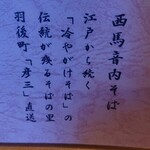 西馬音内そば
江戸から続く
「冷やがけそば」の
伝統が残るそばの里
羽後町「彦三」直送